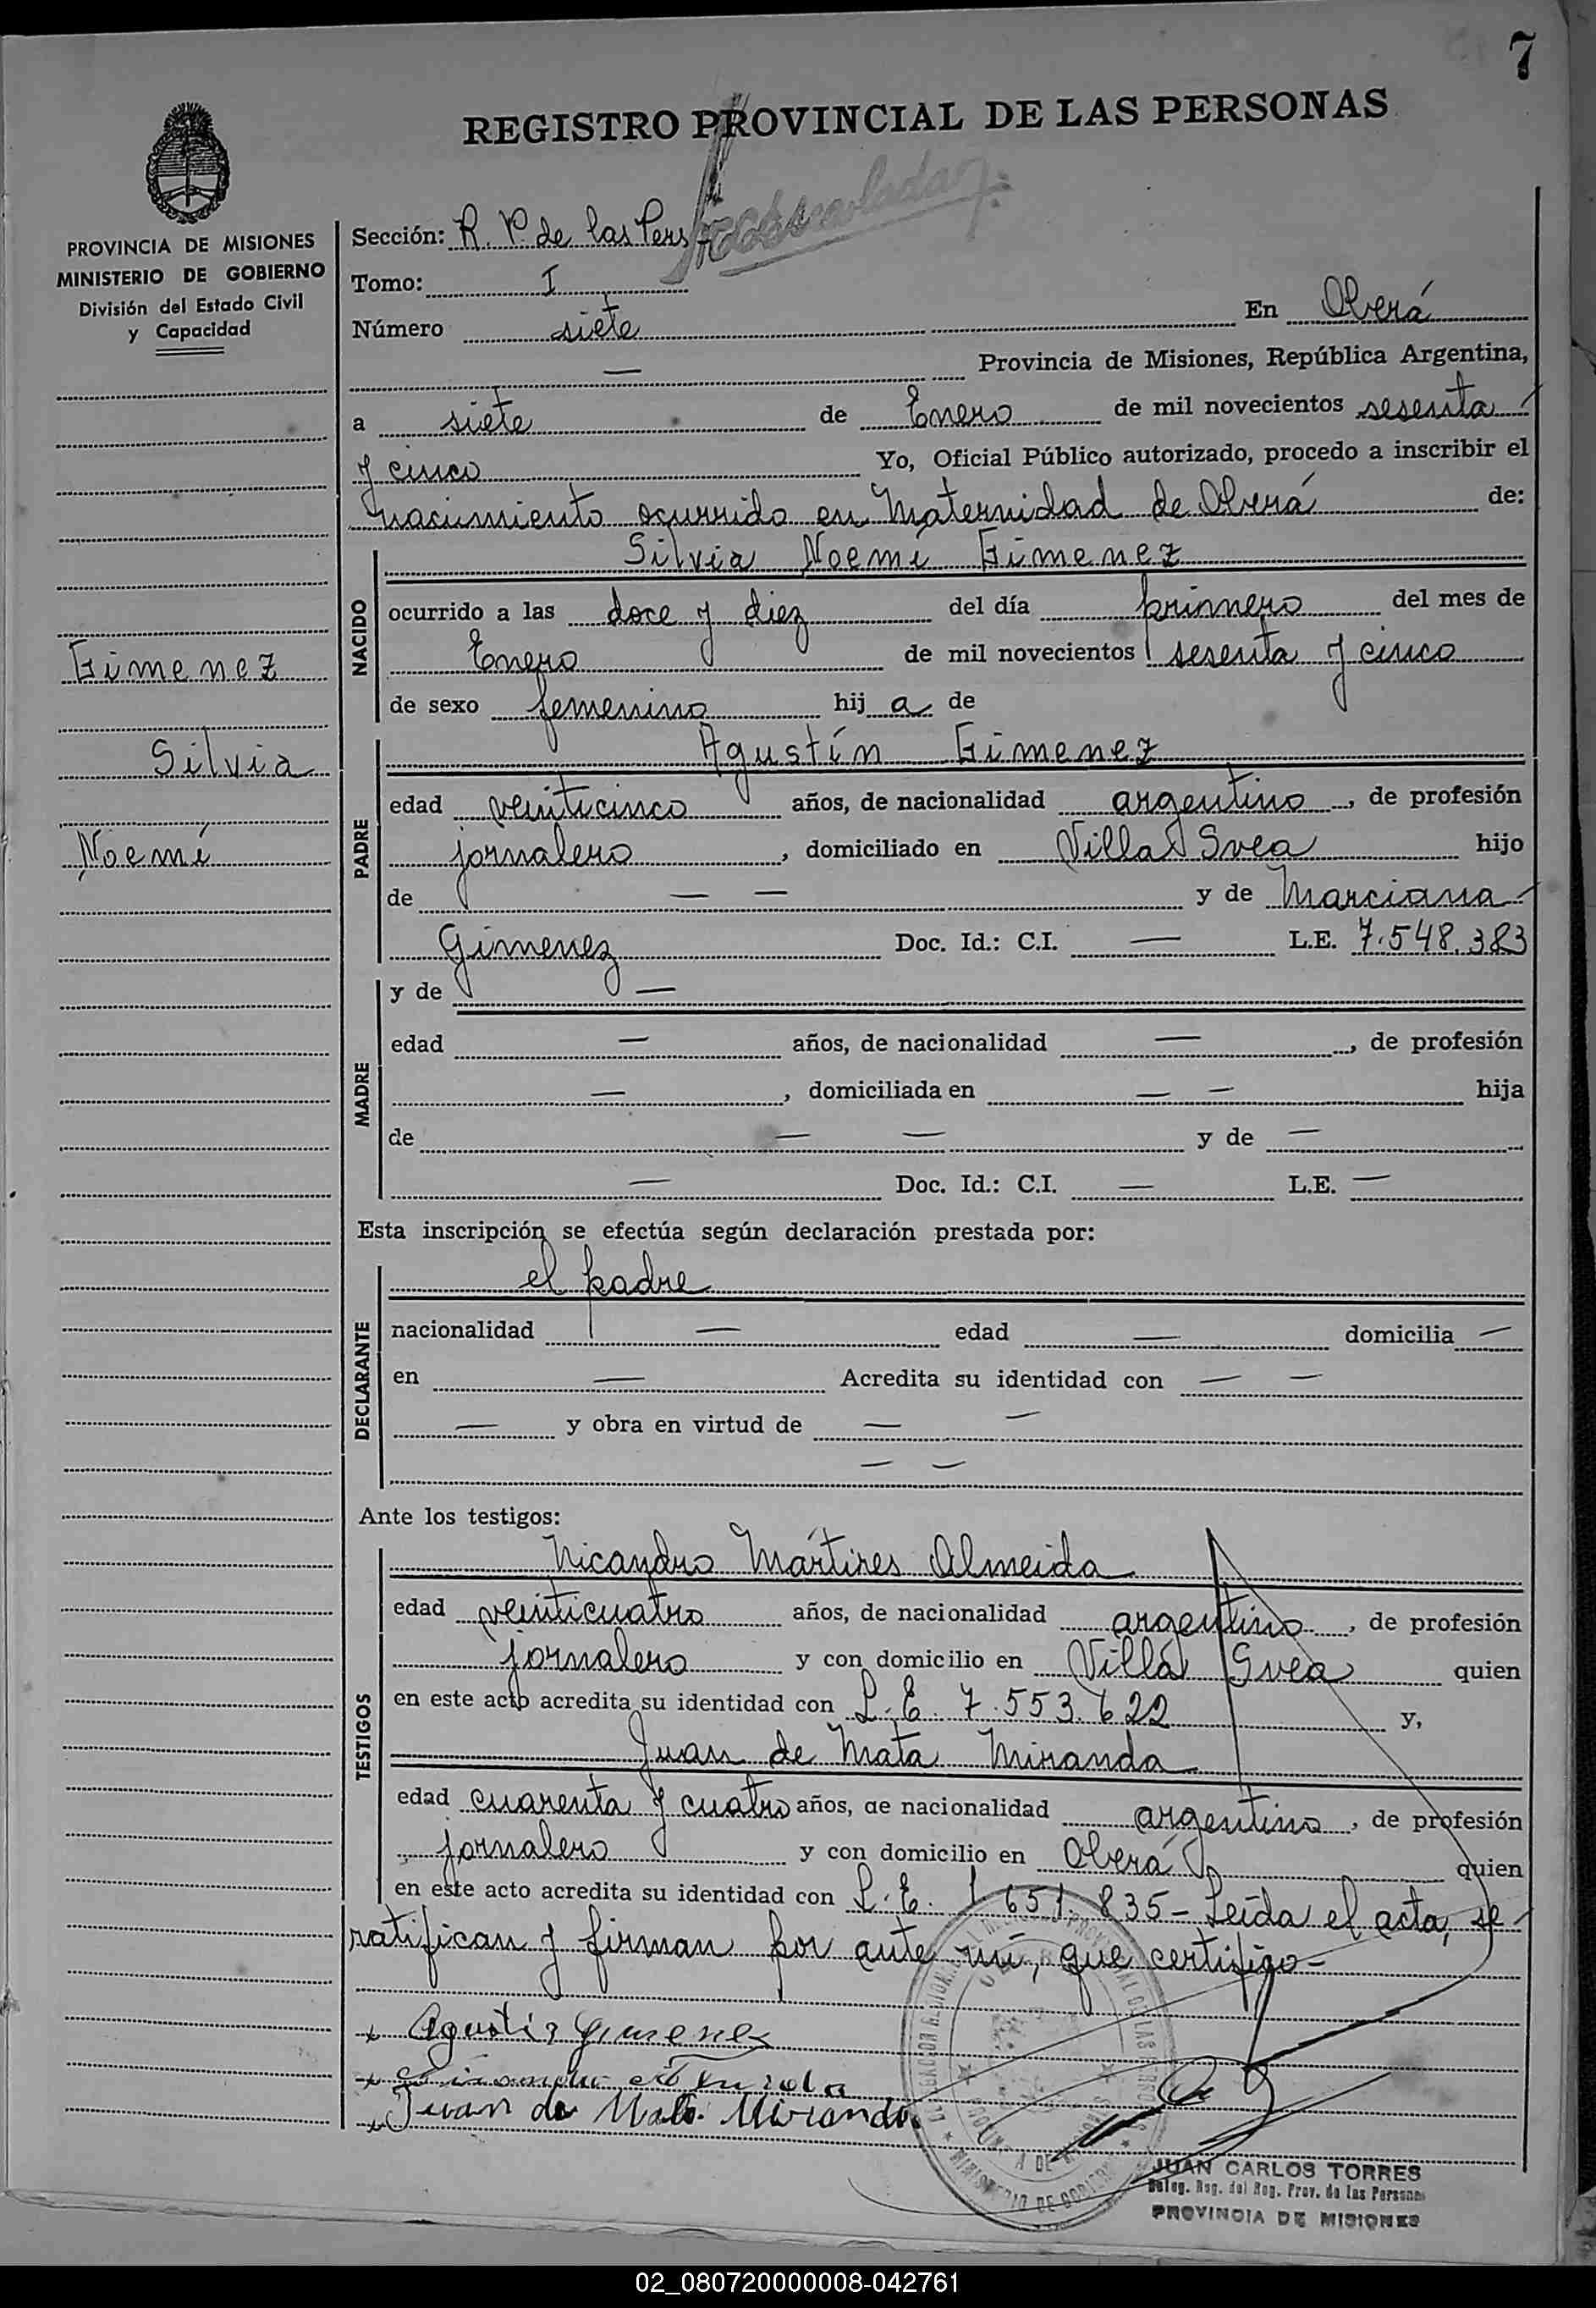 7
REGISTRO PROVINCIAL DE LAS PERSONAS
PROVINCIA DE MISIONES
MINISTERIO DE GOBIERNO
División del Estado Civil
y Capacidad
Gimenez
Silvia
Noemí
Sección: R. P. de las Pers
Tomo: I
Número siete En Oberá
— Provincia de Misiones, República Argentina,
a siete de Enero de mil novecientos sesenta
y cinco Yo, Oficial Público autorizado, procedo a inscribir el
nacimiento ocurrido en Maternidad de Oberá de:
NACIDO
Silvia Noemí Gimenez
ocurrido a las doce y diez del día primero del mes de
Enero de mil novecientos sesenta y cinco
de sexo femenino hij a de
PADRE
Agustín Gimenez
edad veinticinco años, de nacionalidad argentino, de profesión
jornalero, domiciliado en Villa Svea hijo
de — — y de Marciana
Gimenez Doc. Id.: C.I. — L.E. 7.548.383
MADRE
y de —
edad — años, de nacionalidad —, de profesión
—, domiciliada en — — hija
de — — y de —
— Doc. Id.: C.I. — L.E. —
Esta inscripción se efectúa según declaración prestada por:
DECLARANTE
el padre
nacionalidad — edad — domicilia —
en — Acredita su identidad con — —
— y obra en virtud de — —
— —
Ante los testigos:
TESTIGOS
Nicandro Mártires Almeida
edad veinticuatro años, de nacionalidad argentino, de profesión
jornalero y con domicilio en Villa Svea quien
en este acto acredita su identidad con L.E. 7.553.622 y,
Juan de Mata Miranda
edad cuarenta y cuatro años, de nacionalidad argentino, de profesión
jornalero y con domicilio en Oberá quien
en este acto acredita su identidad con L.E. 1 651 835- Leída el acta, se
ratifican y firman por ante mí, que certifigo-
x Agustin Gimenez
x Juan de Mata Miranda
JUAN CARLOS TORRES
Deleg. Reg. del Reg. Prov. de las Personas
PROVINCIA DE MISIONES
02_080720000008-042761